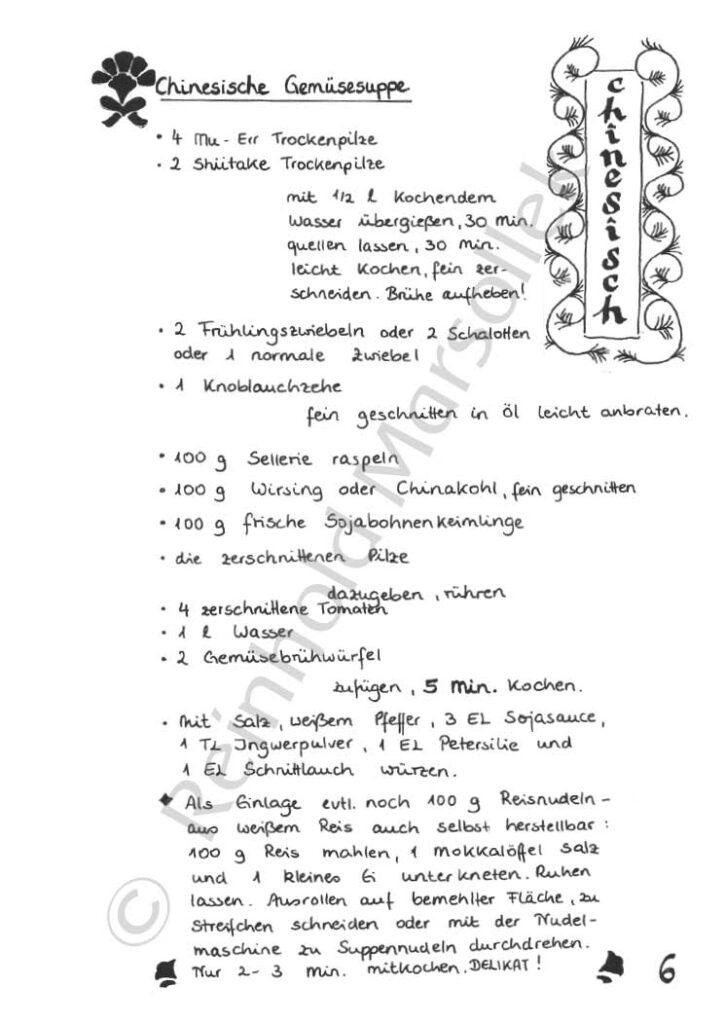 Chinesische Gemüsesuppe
chinesisch
• 4 Mu-Err Trockenpilze
• 2 Shiitake Trockenpilze
mit 1/2 l kochendem
Wasser übergießen, 30 Min.
quellen lassen, 30 min.
leicht kochen, fein zer-
schneiden. Brühe aufheben!
• 2 Frühlingszwiebeln oder 2 Schalotten
oder 1 normale Zwiebel
• 1 Knoblauchzehe
fein geschnitten in Öl leicht anbraten.
• 100 g Sellerie raspeln
• 100 g Wirsing oder Chinakohl, fein geschnitten
• 100 g frische Sojabohnenkeimlinge
• die zerschnittenen Pilze
dazugeben, rühren
• 4 zerschnittene Tomaten
• 1 l Wasser
• 2 Gemüsebrühwürfel
zufügen, 5 Min. kochen.
• Mit Salz, weißem Pfeffer, 3 EL Sojasauce,
1 TL Ingwerpulver, 1 EL Petersilie und
1 EL Schnittlauch würzen.
Als Einlage evtl. noch 100 g Reisnudeln -
aus weißem Reis auch selbst herstellbar:
100 g Reis mahlen, 1 Mokkalöffel Salz
und 1 kleines Ei unterkneten. Ruhen
lassen. Ausrollen auf bemehlter Fläche, zu
Streifchen schneiden oder mit der Nudel-
maschine zu Suppennudeln durchdrehen.
Nur 2-3 min. mitkochen. DELIKAT!
6
© Reinhold Marsollek